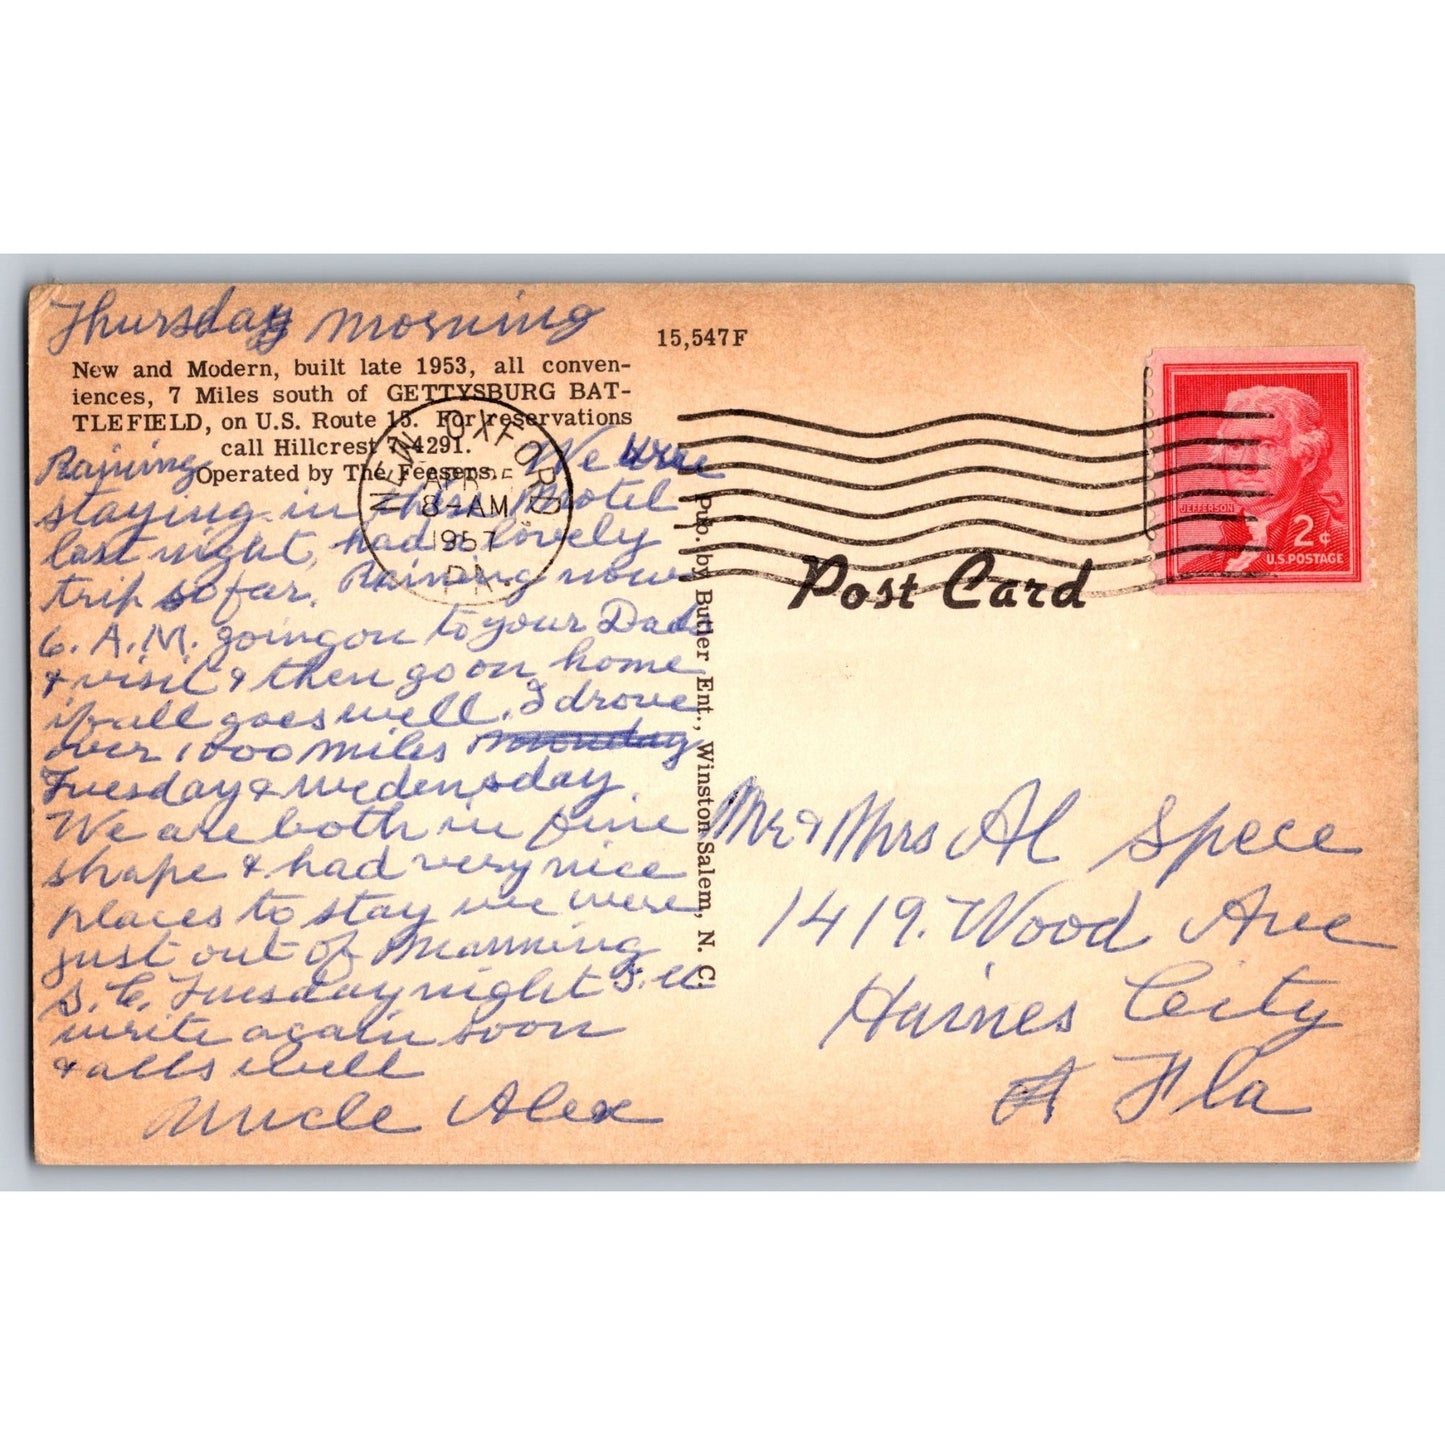 Thursday Morning
New and Modern, built late 1953, all conven-
iences, 7 Miles south of GETTYSBURG BAT-
TLEFIELD, on U.S. Route 15. For reservations
call Hillcrest 7-4291.
Operated by The Feesers.
Raining We were
staying in this Motel
last night, had a lovely
trip so far. Raining now
6. A.M. going on to your Dads
& visit & then go on home
if all goes well. I drove
over 1000 miles Monday
Tuesday & Wedensday.
We are both in fine
shape & had very nice
places to stay we were
just out of Manning
S.C. Tuesday night
write again soon
& alls well
Uncle Alex
NEW OXFORD
APR
8 - AM
1957
PA.
15,547F
Pub. by Butler Ent., Winston-Salem, N. C.
JEFFERSON
2¢
U.S. POSTAGE
Post Card
Mr & Mrs Al Spece
1419. Wood Ave
Haines City
Fla